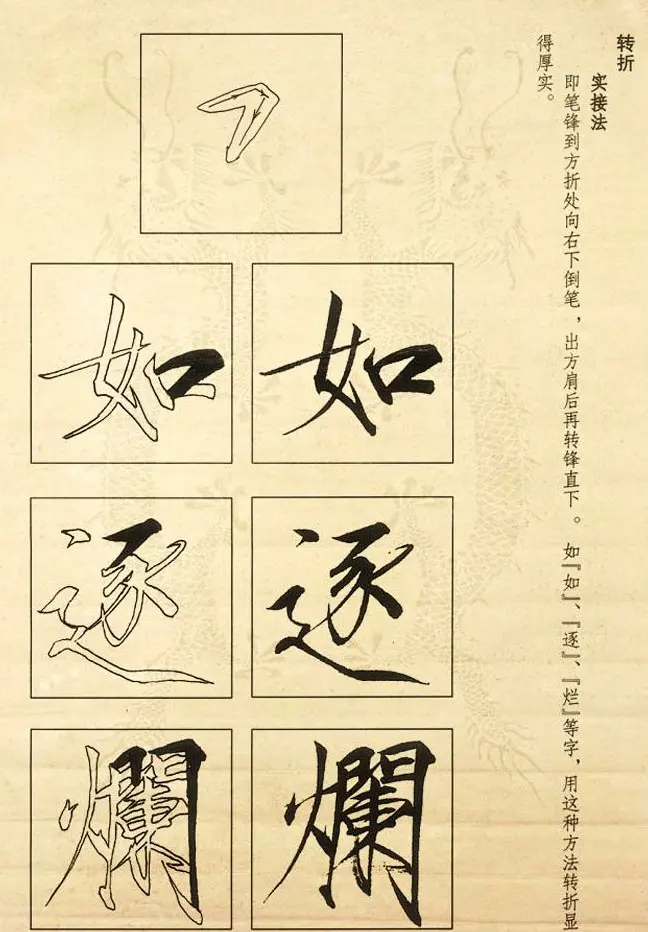 转折
实接法
即笔锋到方折处向右下倒笔，出方肩后再转锋直下。如『如』、『逐』、『烂』等字，用这种方法转折显
得厚实。
如
如
逐
逐
爛
爛